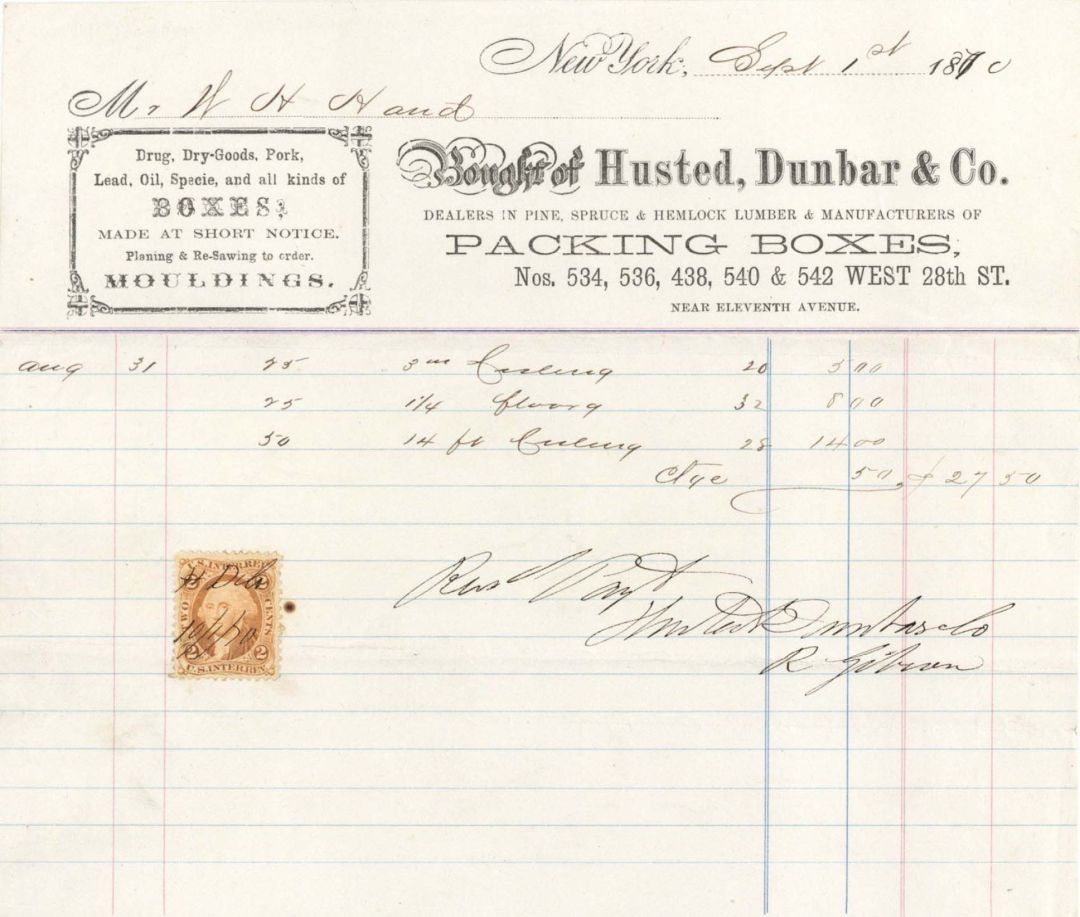 New York, Sept 1st 1870
Mr W H Hand
Drug, Dry-Goods, Pork,
Lead, Oil, Specie, and all kinds of
BOXES;
MADE AT SHORT NOTICE.
Planing & Re-Sawing to order.
MOULDINGS.
Bought of Husted, Dunbar & Co.
DEALERS IN PINE, SPRUCE & HEMLOCK LUMBER & MANUFACTURERS OF
PACKING BOXES,
Nos. 534, 536, 438, 540 & 542 WEST 28th ST.
NEAR ELEVENTH AVENUE.
Aug 31 25 Ceiling 20 5 00
25 1 1/4 floorg 32 8 00
50 14 ft Ceiling 28 14 00
Ctge 50 $ 27 50
U.S. INTER. REV.
TWO CENTS
H D & Co
2 2
U.S. INTER. REV.
Recd Payt
Husted Dunbar & Co
R Gibson